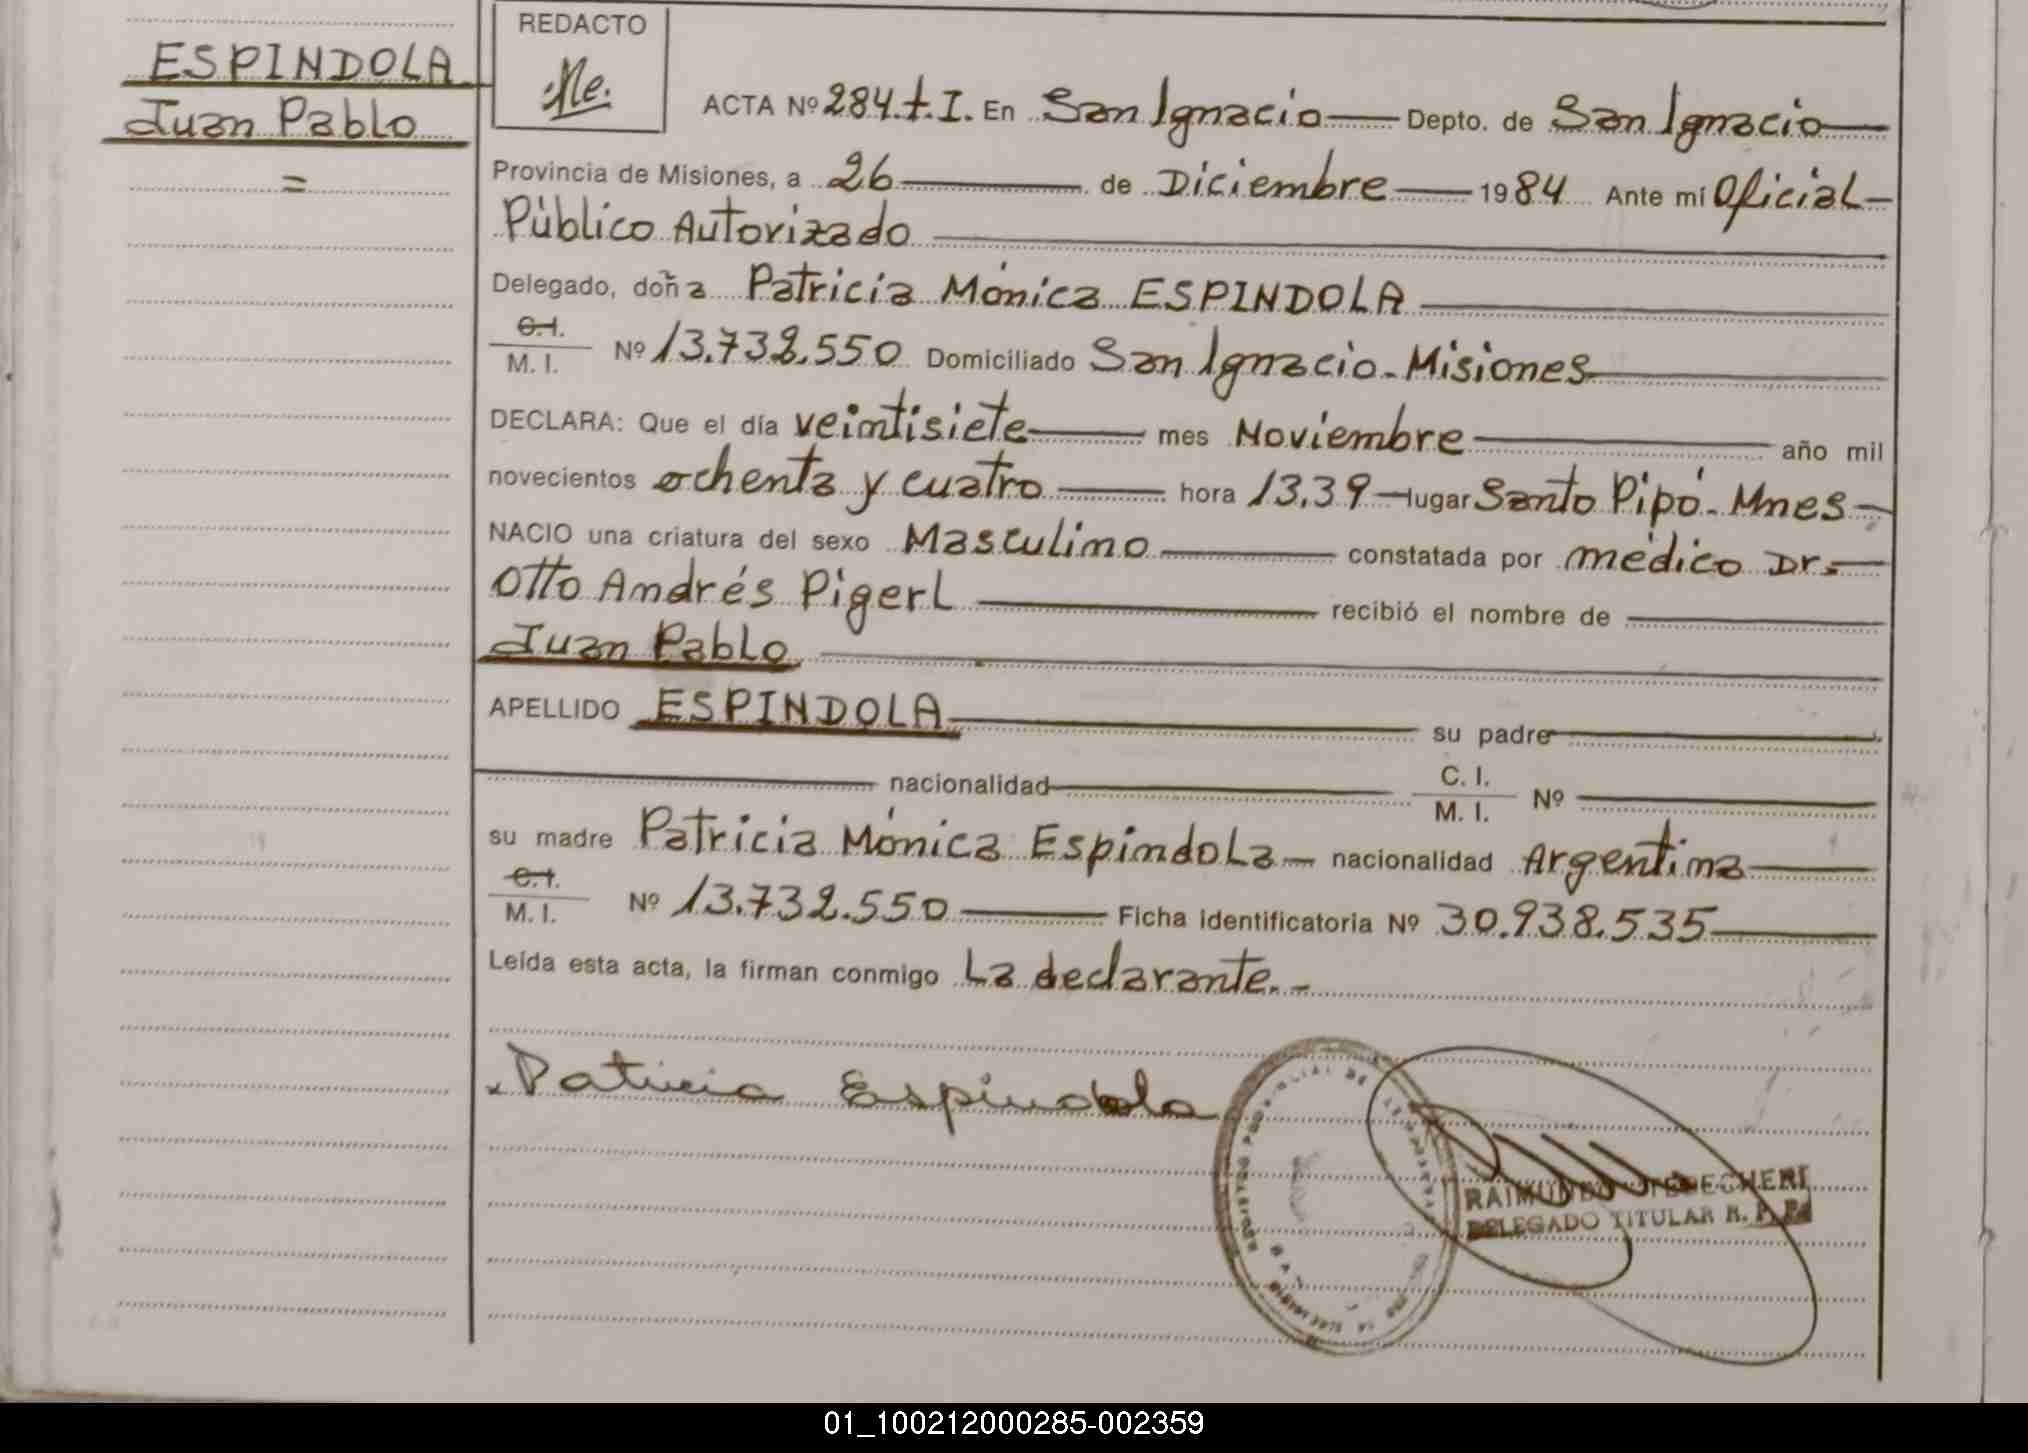 ESPINDOLA
Juan Pablo
=
REDACTO
ACTA Nº 284.t.I. En San Ignacio Depto. de San Ignacio
Provincia de Misiones, a 26 de Diciembre 1984 Ante mí Oficial
Público Autorizado
Delegado, doña Patricia Mónica ESPINDOLA
C.I.
M. I. Nº 13.732.550 Domiciliado San Ignacio - Misiones
DECLARA: Que el día veintisiete mes Noviembre año mil
novecientos ochenta y cuatro hora 13.39 lugar Santo Pipó - Mnes
NACIO una criatura del sexo Masculino constatada por médico Dr.
Otto Andrés Pigerl recibió el nombre de
Juan Pablo
APELLIDO ESPINDOLA su padre
nacionalidad C. I.
M. I. Nº
su madre Patricia Mónica Espíndola nacionalidad Argentina
C.I.
M. I. Nº 13.732.550 Ficha identificatoria Nº 30.938.535
Leída esta acta, la firman conmigo La declarante.-
Patricia Espindola
RAIMUNDO
DELEGADO TITULAR R. P. P.
01_100212000285-002359